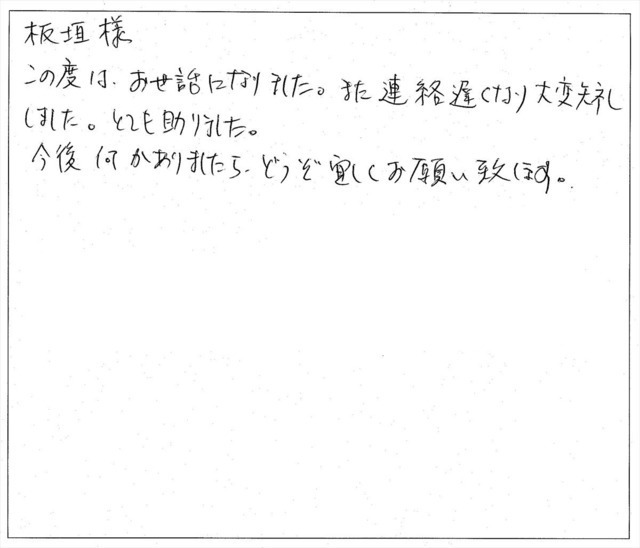 板垣様
この度は、お世話になりました。また連絡遅くなり大変失礼
しました。とても助りました。
今後何かありましたら、どうぞ宜しくお願い致します。